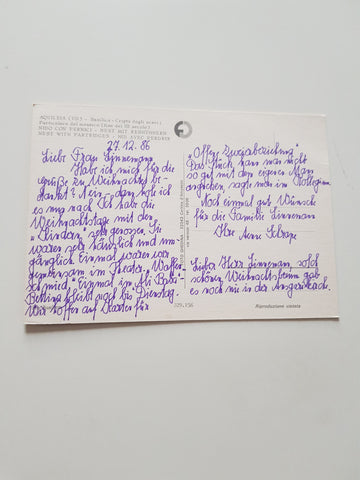 AQUILEIA (UD.) - Basilica - Cripta degli scavi:
Particolare del mosaico (fine del III secolo)
NIDO CON PERNICI - NEST MIT REBHÜHNERN
NEST WITH PARTRIDGES - NID AVEC PERDRIX
27.12.86
Liebe Frau Linnemann
Habe ich mich für die
Grüße zu Weihnachten be-
dankt? Nein - dann hole ich
es mg nach. Ich habe die
Weihnachtstage mit der
"Linda" sehr genossen. Sie
waren sehr häuslich und um-
gänglich. Einmal waren wir
gemeinsam im Theater: "Waffen-
schmied." Einmal in "Ali Baba"
Bettina bleibt noch bis Dienstag.
Wir hoffen auf Karten für
"Offene Zweierbeziehung"
Das Stück kann man nicht
so gut mit dem eigenen Mann
angucken, sagte man im Kollegium.
Noch einmal gute Wünsche
für die Familie Linnemann
Ihre Anne
Lieber Herr Linnemann, solch
schönen Weihnachtsbaum gab
es noch nie in der Angerstraße.
329.156
Riproduzione vietata